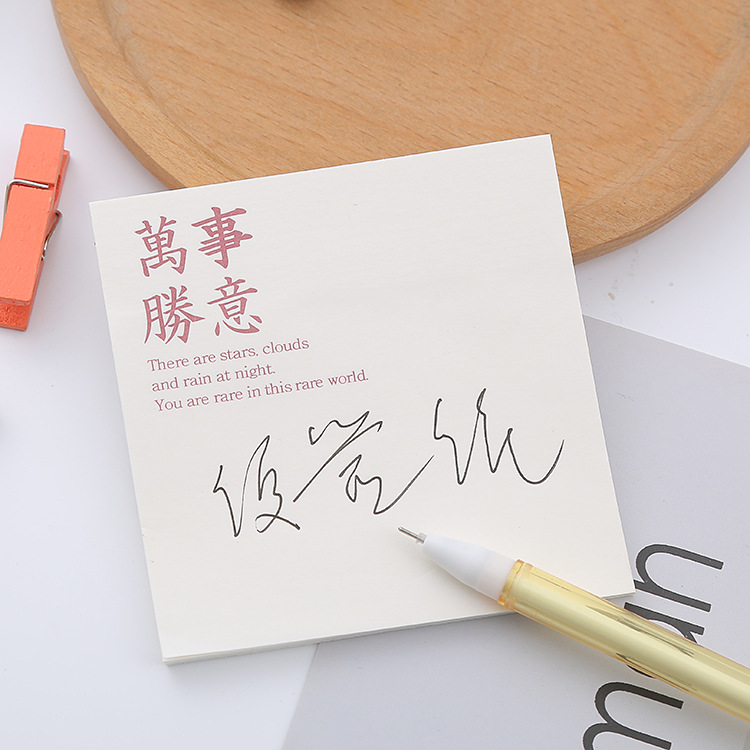 萬事
勝意
There are stars, clouds
and rain at night.
You are rare in this rare world.
便签纸